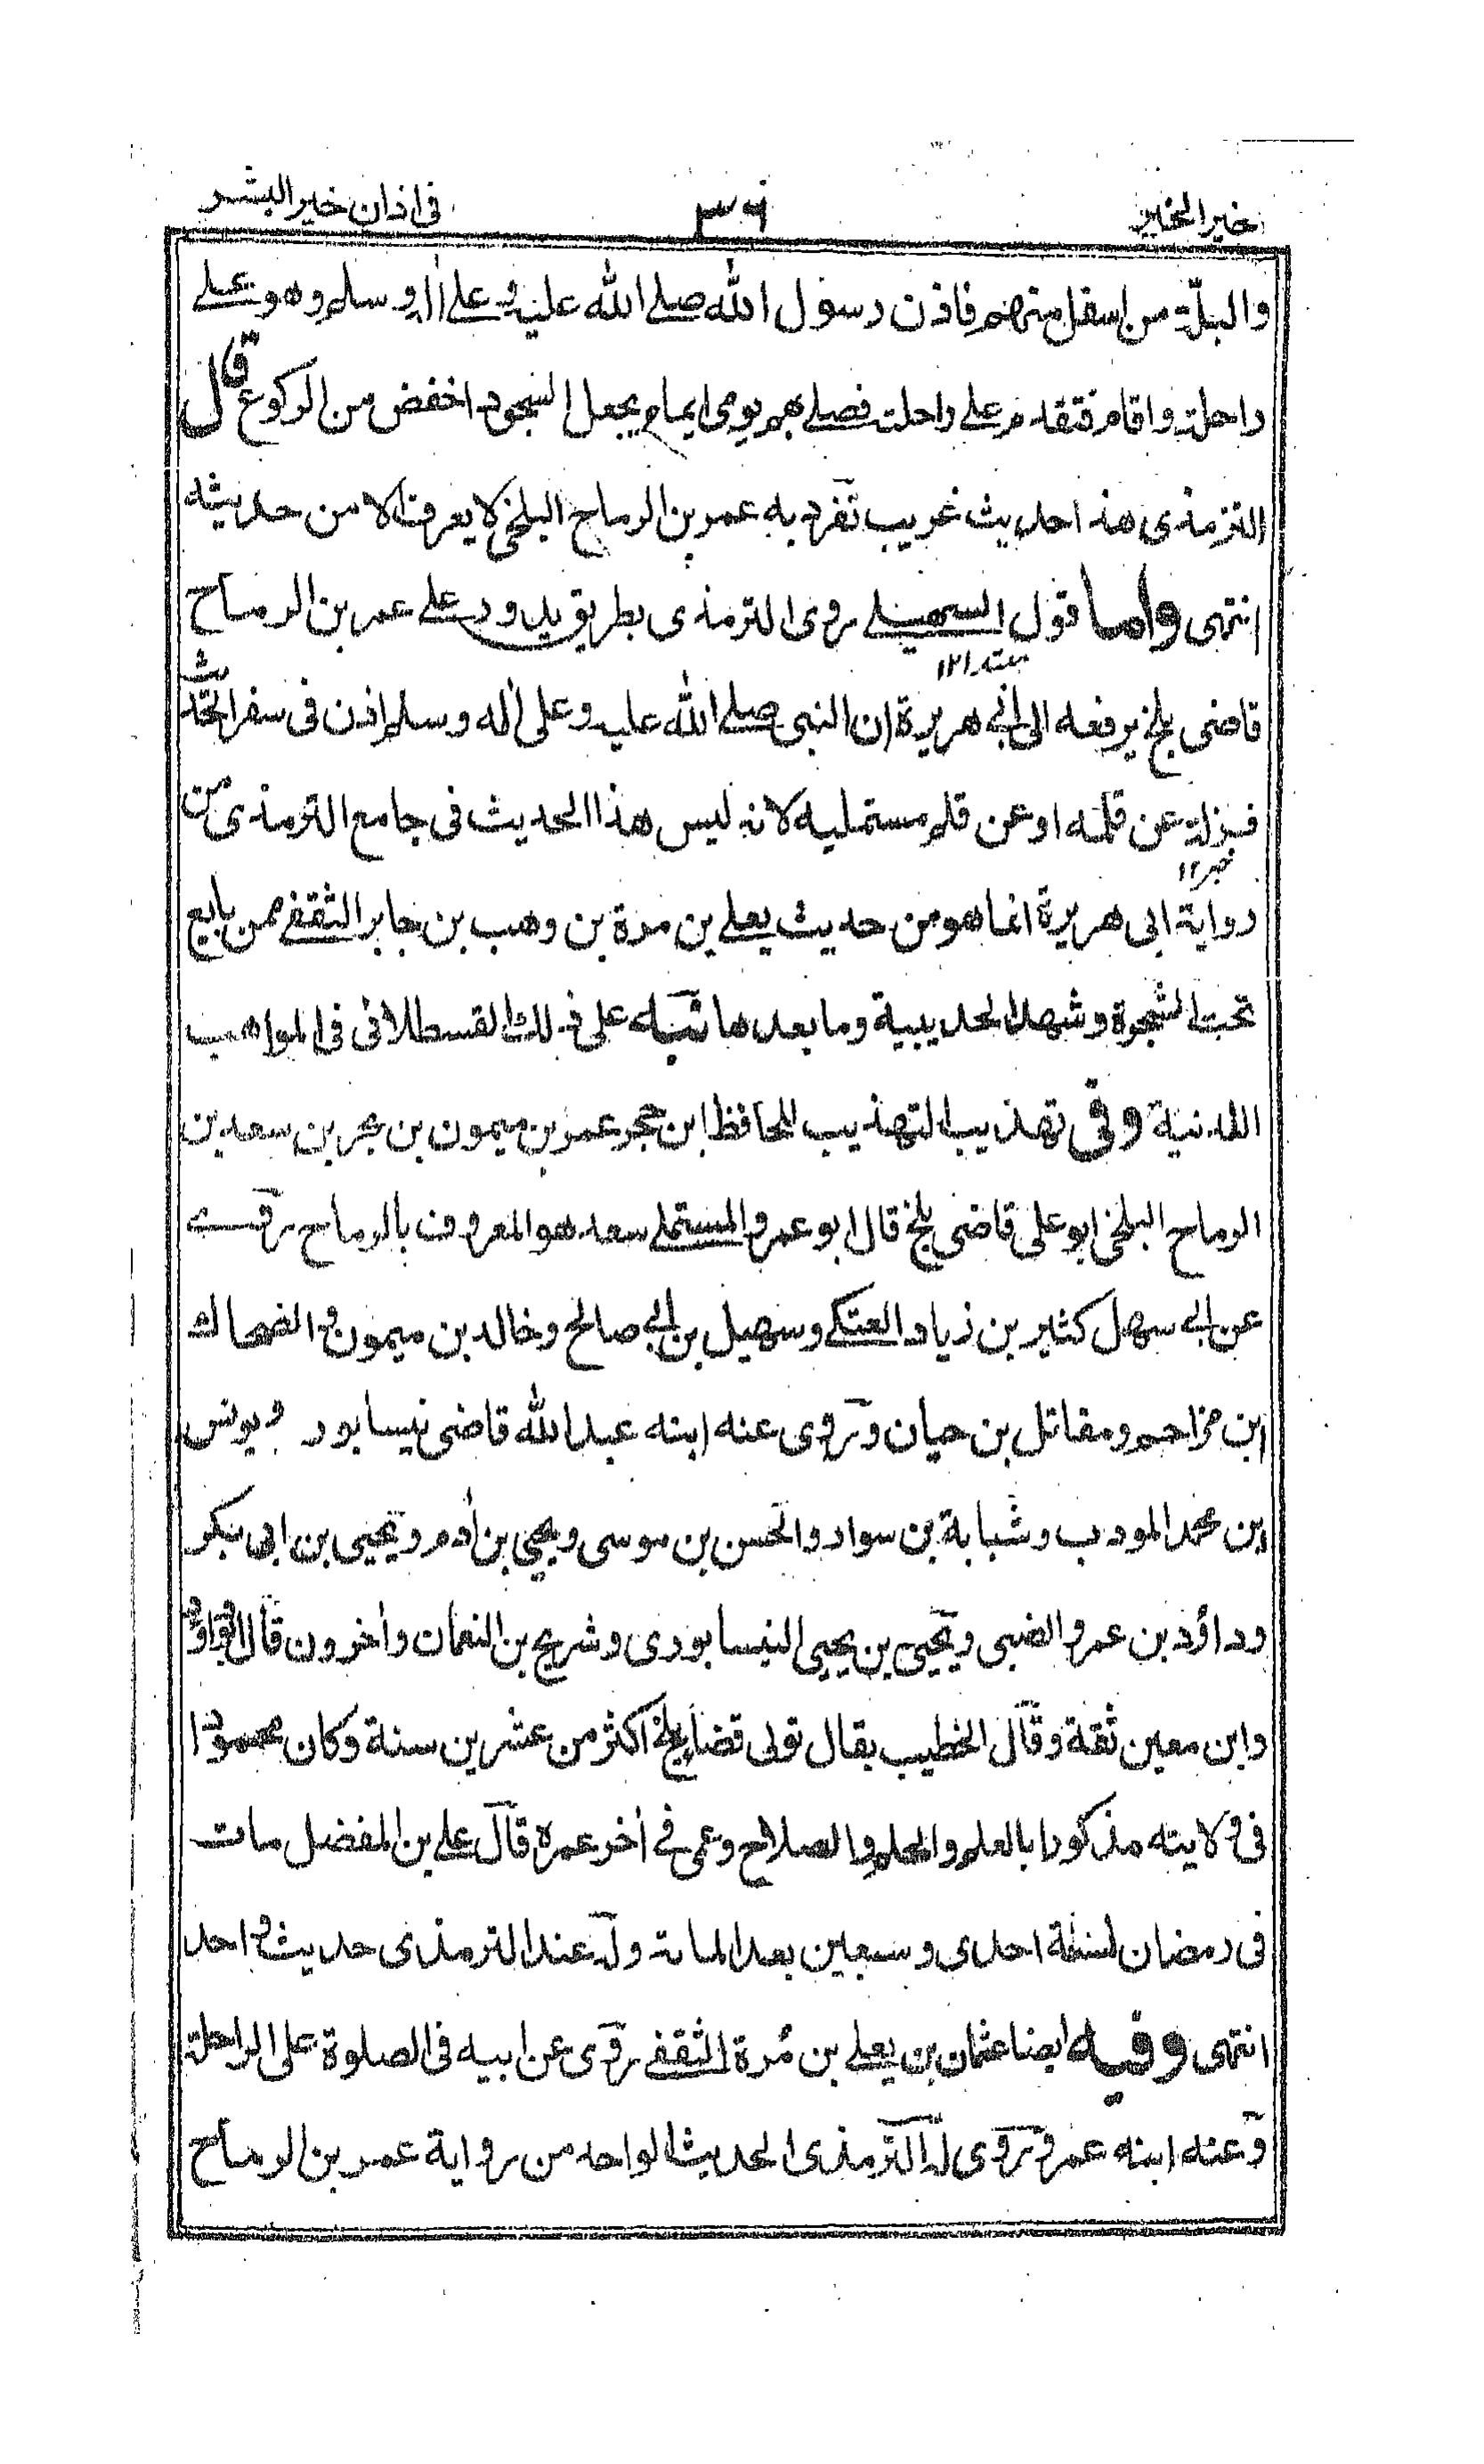 خير الخبر ٣٦ فى اذان خير البشر
والبلة من اسفل منهم فاذن رسول الله صلے الله عليه و علے اله وسلم وهو علے
راحلته واقام فتقدم علے راحلته فصلے بهم يومى ايماء يجعل السجود اخفض من الركوع قال
الترمذى هذا حديث غريب تفرد به عمر بن الرماح البلخى لا يعرف الا من حديثه
انتهى واما قول السهيلے روى الترمذى بطريق يدور علے عمر بن الرماح
مبتدا ١٢
قاضى بلخ يرفعه الى ابى هريرة ان النبى صلے الله عليه وعلى اله وسلم اذن فى سفر الحديث
فزلة عن قلمه او عن قلم مستمليه لانه ليس هذا الحديث فى جامع الترمذى من
خبر ١٢
رواية ابى هريرة انما هو من حديث يعلے بن مرة بن وهب بن جابر الثقفے ممن بايع
تحت الشجرة وشهد الحديبية وما بعدها نبه على ذلك القسطلانى فى المواهب
اللدنية وفى تهذيب التهذيب للحافظ ابن حجر عمر بن ميمون بن بحر بن سعد بن
الرماح البلخى ابو على قاضى بلخ قال ابو عمرو المستملے سعد هو المعروف بالرماح روے
عن ابے سهل كثير بن زياد العتكے وسهيل بن ابے صالح وخالد بن ميمون و الضحاك
ابن مزاحم ومقاتل بن حيان وروى عنه ابنه عبد الله قاضى نيسابور و يونس
ابن محمد المودب وشبابة بن سوار والحسن بن موسى ويحيى بن أدم ويحيى بن ابى بكر
وداؤد بن عمرو الضبى ويحيى بن يحيى النيسابورى وشريح بن النعمان وأخرون قال ابو داؤد
وابن معين ثقة وقال الخطيب يقال تولى قضاء بلخ اكثر من عشرين سنة وكان محمودا
فى ولايته مذكورا بالعلم والحلم والصلاح وعمى فے أخر عمره قال علے بن المفضل مات
فى رمضان لسنة احدى وسبعين بعد المائة وله عند الترمذى حديث واحد
انتهى وفيه ايضا عثمان بن يعلے بن مُرة الثقفے روى عن ابيه فى الصلوة على الراحلة
وعنه ابنه عمرو روى له الترمذى الحديث الواحد من رواية عمر بن الرماح